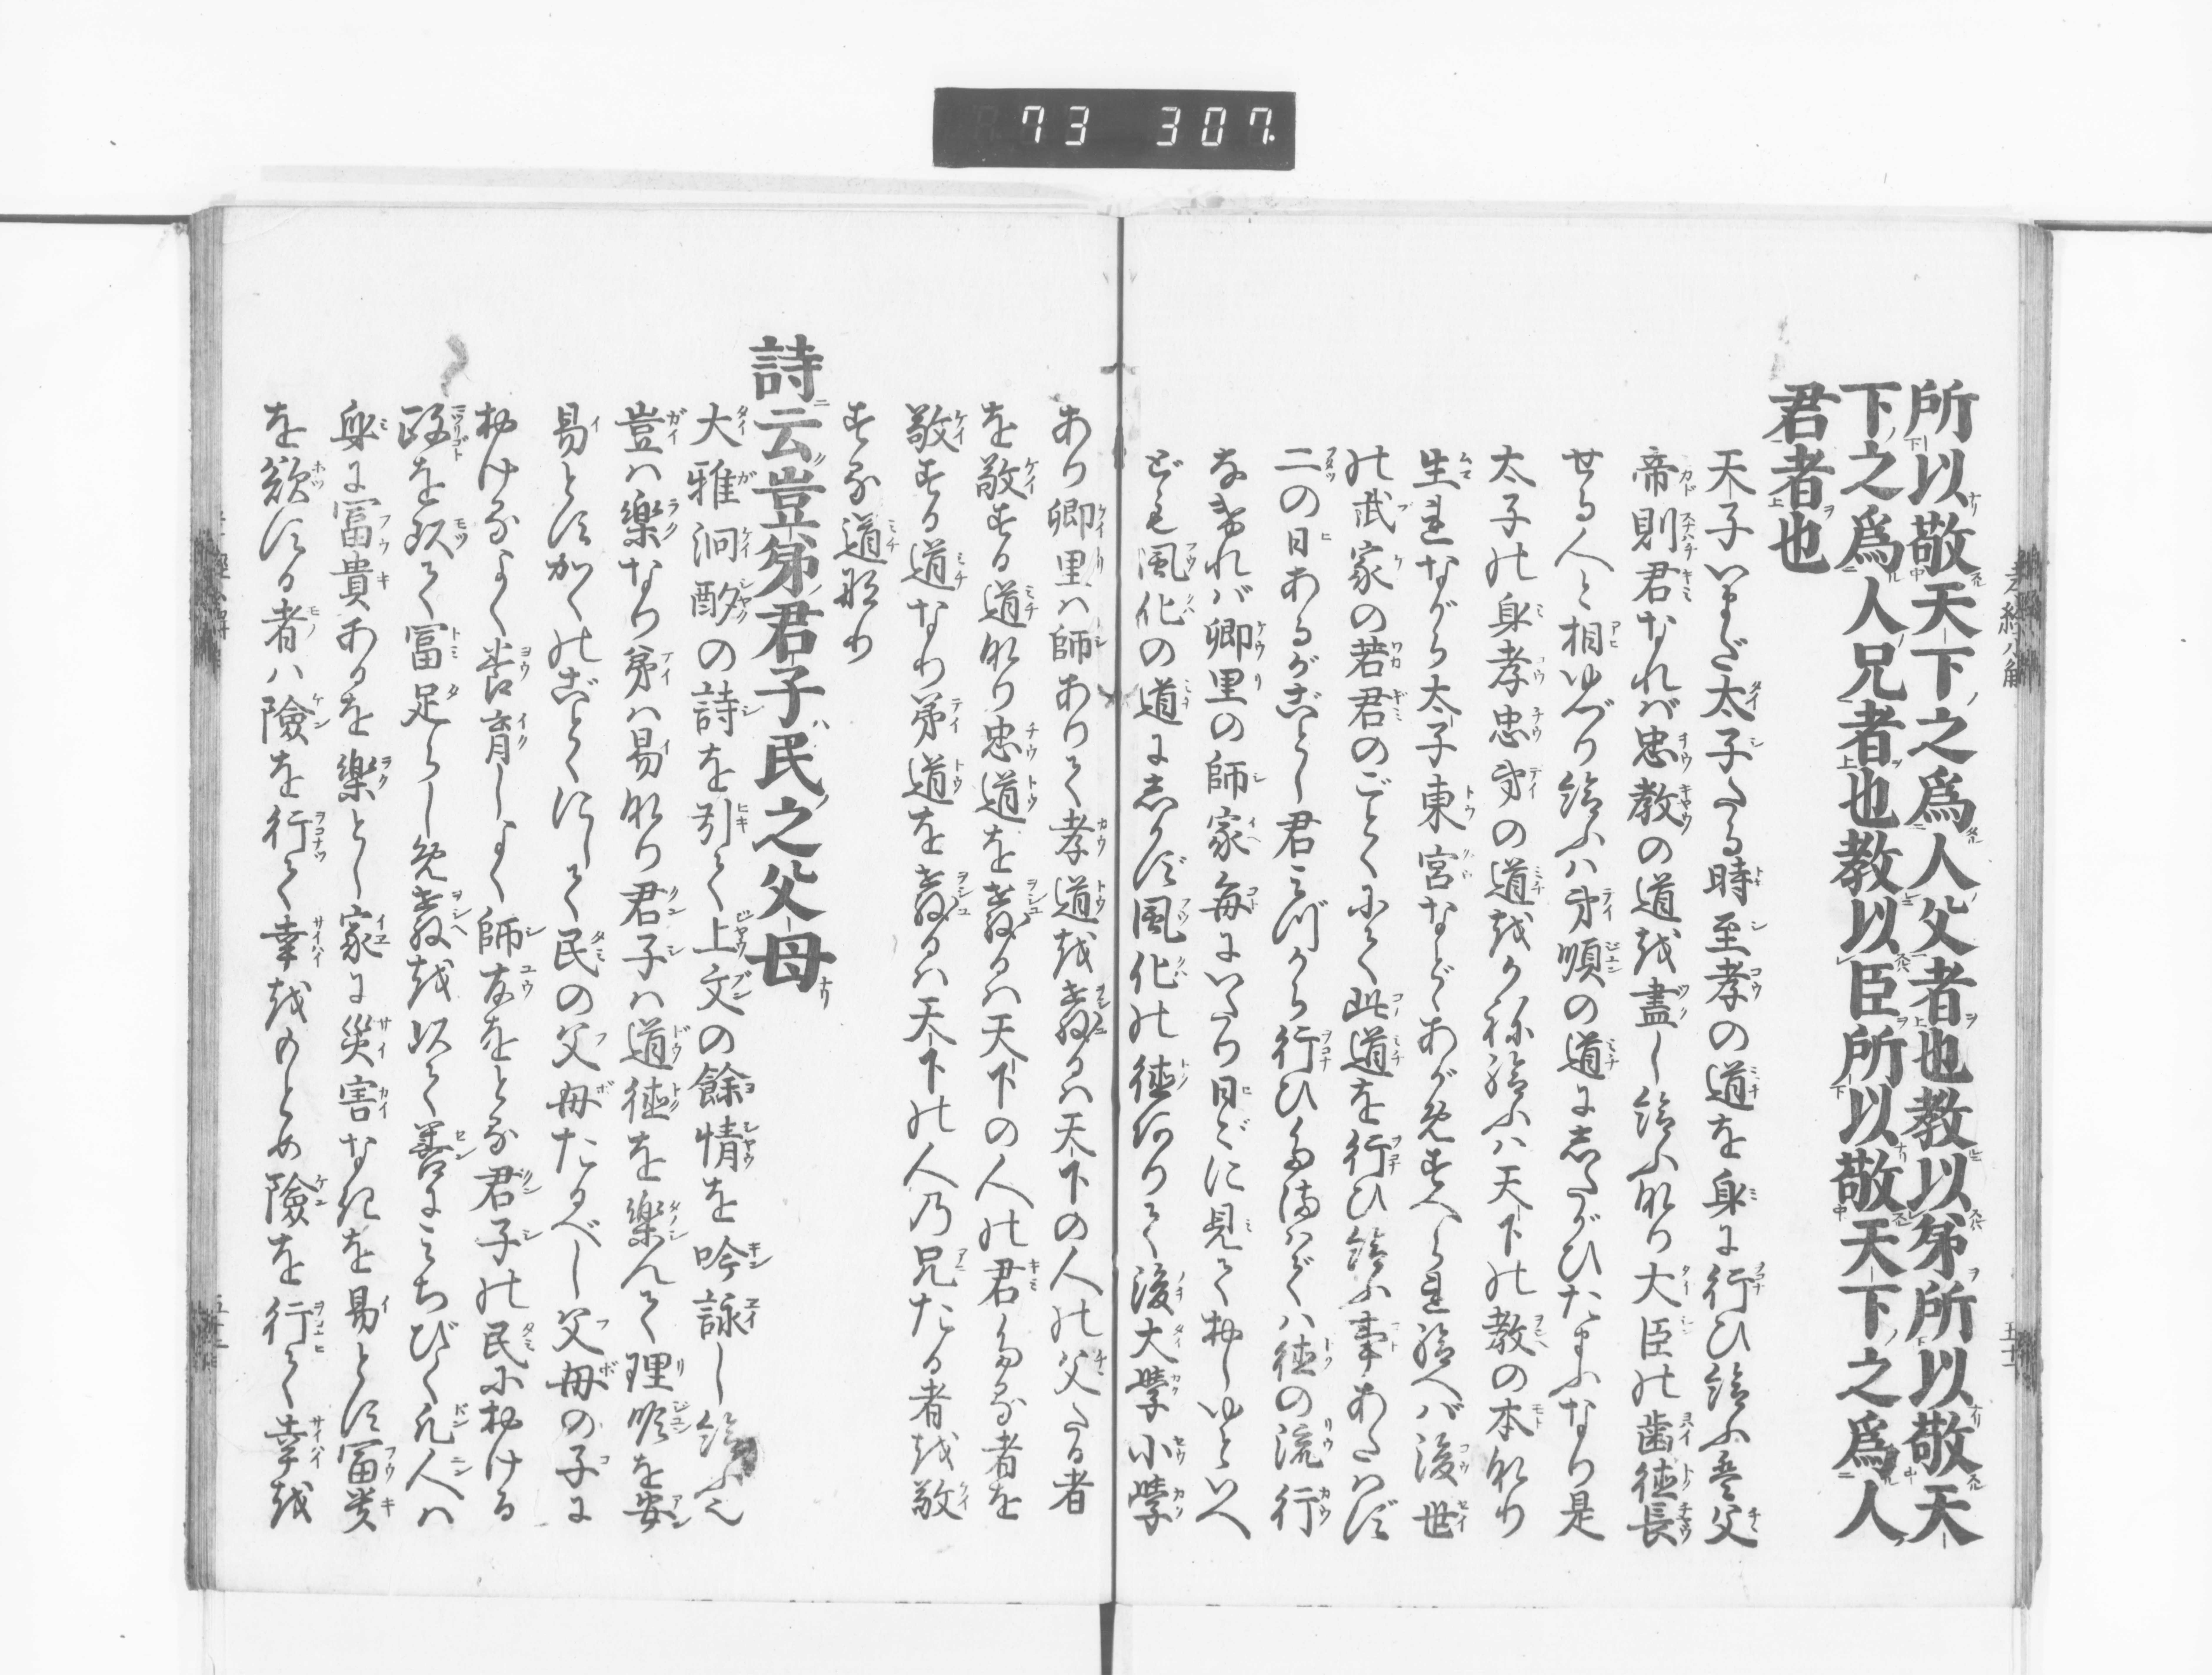 73 307
所以敬天下之爲人父者也教以弟所以敬天
下之爲人兄者也教以臣所以敬天下之爲人
君者也
天子いまだ太子たる時至孝の道を身に行ひ給ふ是父
帝則君なれば忠教の道を盡し給ふ也大臣の歯徳長
せる人と相ゆづり給ふハ弟順の道にしたがひたまふなり是
太子の身孝忠弟の道をかね給ふハ天下の教の本なり
生ながら太子東宮などあがめすへられ給へバ後世
の武家の若君のごとくにて此道を行ひ給ふ事あたはず
二の日あるがごとし君みづから行ひたまはでハ徳の流行
なければ郷里の師家毎にいたり日ごに見ておしゆといへ
ども風化の道にしかず風化の徳ありて後大学小学
あり郷里ハ師ありて孝道を教るハ天下の人の父たる者
を敬する道なり忠道を教るハ天下の人の君たる者を
敬する道なり弟道を教るハ天下の人乃兄たる者を敬
する道なり
詩云豈弟君子民之父母
大雅泂酌の詩を引て上文の餘情を吟詠し給ふ也
豈ハ樂なり弟ハ易なり君子ハ道徳を樂んて理順を安
易とすかくのごとくにして民の父母たるべし父母の子に
おけるよく養育しよく師友をとる君子の民における
政を以て富足らしめ教を以て善にみちびく凡人ハ
身に富貴あるを樂とし家に災害なきを易とす冨貴
を欲する者ハ險を行て幸をもとめ險を行て幸を